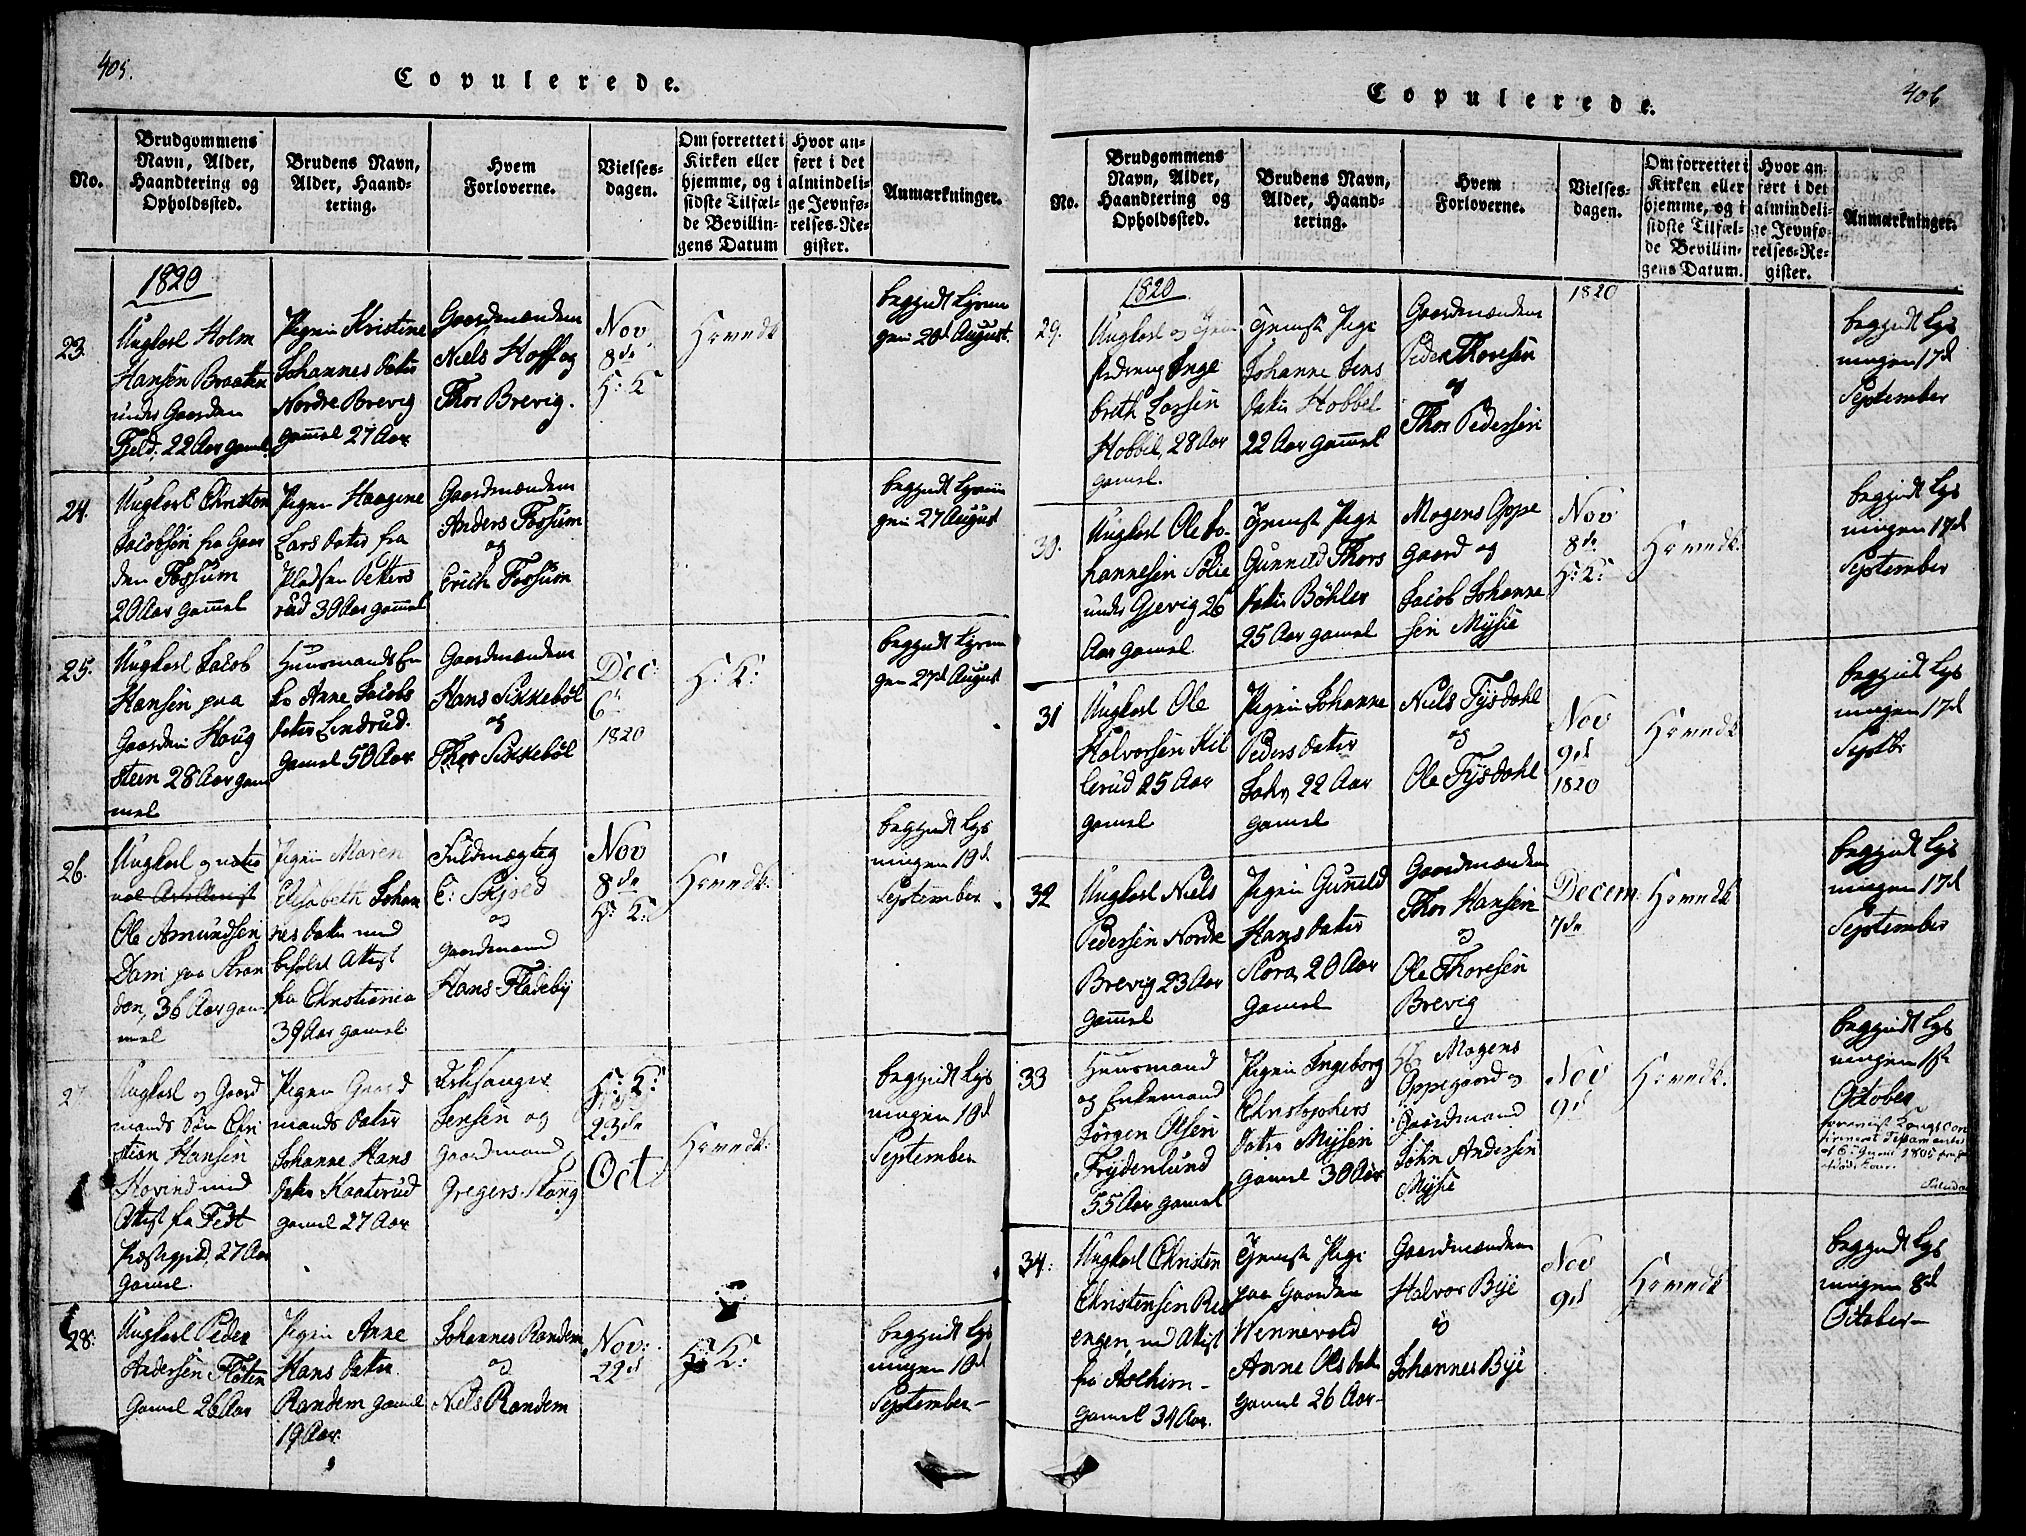 405.
Copulerede.
No.
Brudgommens
Navn, Alder,
Haandtering og
Opholdssted.
Brudens Navn,
Alder, Haand-
tering.
Hvem
Forloverne.
Vielses-
dagen.
Om forrettet i
Kirken eller
hjemme, og i
sidste Tilfæl-
de Bevillin-
gens Datum
Hvor an-
ført i det
almindeli-
ge Jevnfø-
relses-Re-
gister.
Anmærkninger.
1820
23.
Ungkarl Holm
Hansen Braaten
under Gaarden
Field, 22 Aar gamel
Pigen Kristine
Johannes datter
Nordre Brevig
gamel 27 Aar
Gaardmændene
Niels Hoff og
Thor Brevig.
Nov.
8de
H: K
begyndt Lysnin
gen 20d August.
24.
Ungkarl Christen
Jacobsen fra Gaar
den Fossum
20 Aar gamel
Pigen Haagine
Lars datter fra
Pladsen Petters
rud 30 Aar gamel
Gaardmændene
Anders Fossum
og
Erich Fossum
begyndt Lysnin
gen 27 August
25.
Ungkarl Jacob
Hansen paa
Gaarden Haug
steen 28 Aar gam
mel
Huusmands En
ke Anne Jacobs
datter Lindrud.
Gamel 50 Aar
Gaardmændene
Hans Sikkebøl
og
Thor Sikkebøl
Dec:
6te
1820
H: K:
begyndt Lysnin
gen 27d August
26.
Ungkarl og
Ole Amundsen
Dam paa Stran
den, 36 Aar gam
mel
Pigen Maren
Elisabeth Johan
nes datter med
Attest
fra Christiania
39 Aar gamel
Fuldmægtig
E: Skjold
og
Gaardmand
Hans Fladeby
Nov
8de
H: K:
begyndt Lys
ningen 10d
September
27
Ungkarl og Gaard
mands Søn Chri
stian Hansen
Hovind med
Attest fra Fedt
Præstegield, 27 Aar
Gamel.
Pigen Gaard
mands datter
Johanne Hans
datter Kaaterud
gamel 27 Aar
Kirkesanger
Jensen og
Gaardmand
Gregers Stang
H: K:
23de
Oct
begyndt Lys
ningen 10d
September
28.
Ungkarl Peder
Andersen Fløten
Gamel 26 Aar
Pigen Anne
Hans datter
Randem gamel
19 Aar.
Johannes Randem
og
Niels Randem
Nov:
22d
H: K:
begyndt Lys
ningen 10d
September
406
Copulerede.
No.
Brudgommens
Navn, Alder,
Haandtering og
Opholdssted.
Brudens Navn,
Alder, Haand-
tering.
Hvem
Forloverne.
Vielses-
dagen.
Om forrettet i
Kirken eller
hjemme, og i
sidste Tilfæl-
de Bevillin-
gens Datum.
Hvor an-
ført i det
almindeli-
ge Jevnfø-
relses-Re-
gister.
Anmærkninger.
1820
1820
29.
Ungkarl og
Inge
breth Larsen
Hobbel, 28 Aar
gamel.
Pige
Johanne Jens
datter Hobbel
22 Aar gamel
Gaardmændene
Peder Thoresen
og
Thor Pedersen
begyndt Lys
ningen 17d
September
30.
Ungkarl Ole Jo-
hannesen Solie
under Gjevig 26
Aar gamel
Pige
Gunnild Thors
datter Bøhler
25 Aar gamel
Mogens Oppe
gaard og
Jacob Johanne
sen Mysie
Nov
8de
H: K:
begyndt Lys
ningen 17d
September
31
Ungkarl Ole
Halvorsen Kil
lerud 25 Aar
gamel
Pigen Johanne
Peders datter
22 Aar
gamel
Niels Tysdahl
og
Ole Tysdahl
Nov
9d
1820
begyndt Lys
ningen 17d
Septbr
32
Ungkarl Niels
Pedersen Nordre
Brevig 23 Aar
gamel
Pigen Gunnild
Hans datter
Flora, 20 Aar
gamel
Gaardmændene
Thor Hansen
og
Ole Thoresen
Brevig
Decem.
7de
begyndt Lys
ningen 17d
September
33
Huusmand
og Enkemand
Jørgen Olsen
Frydenlund
55 Aar gamel
Pigen Ingeborg
Christophers
datter Mysen
gamel 30 Aar
Mogens
Oppegaard og
Gaardmand
John Andersen
Mysie
Nov
9d
begyndt Lys
ningen 1ste
October
34.
Ungkarl Christen
Christensen
engen, med Attest
fra
gamel 34 Aar.
Pige
paa Gaarden
Wennevold
Anne Ols dater
gamel 26 Aar
Gaardmændene
Halvor Bye
og
Johannes Bye
Nov
9d
begyndt Lys
ningen 8d
October